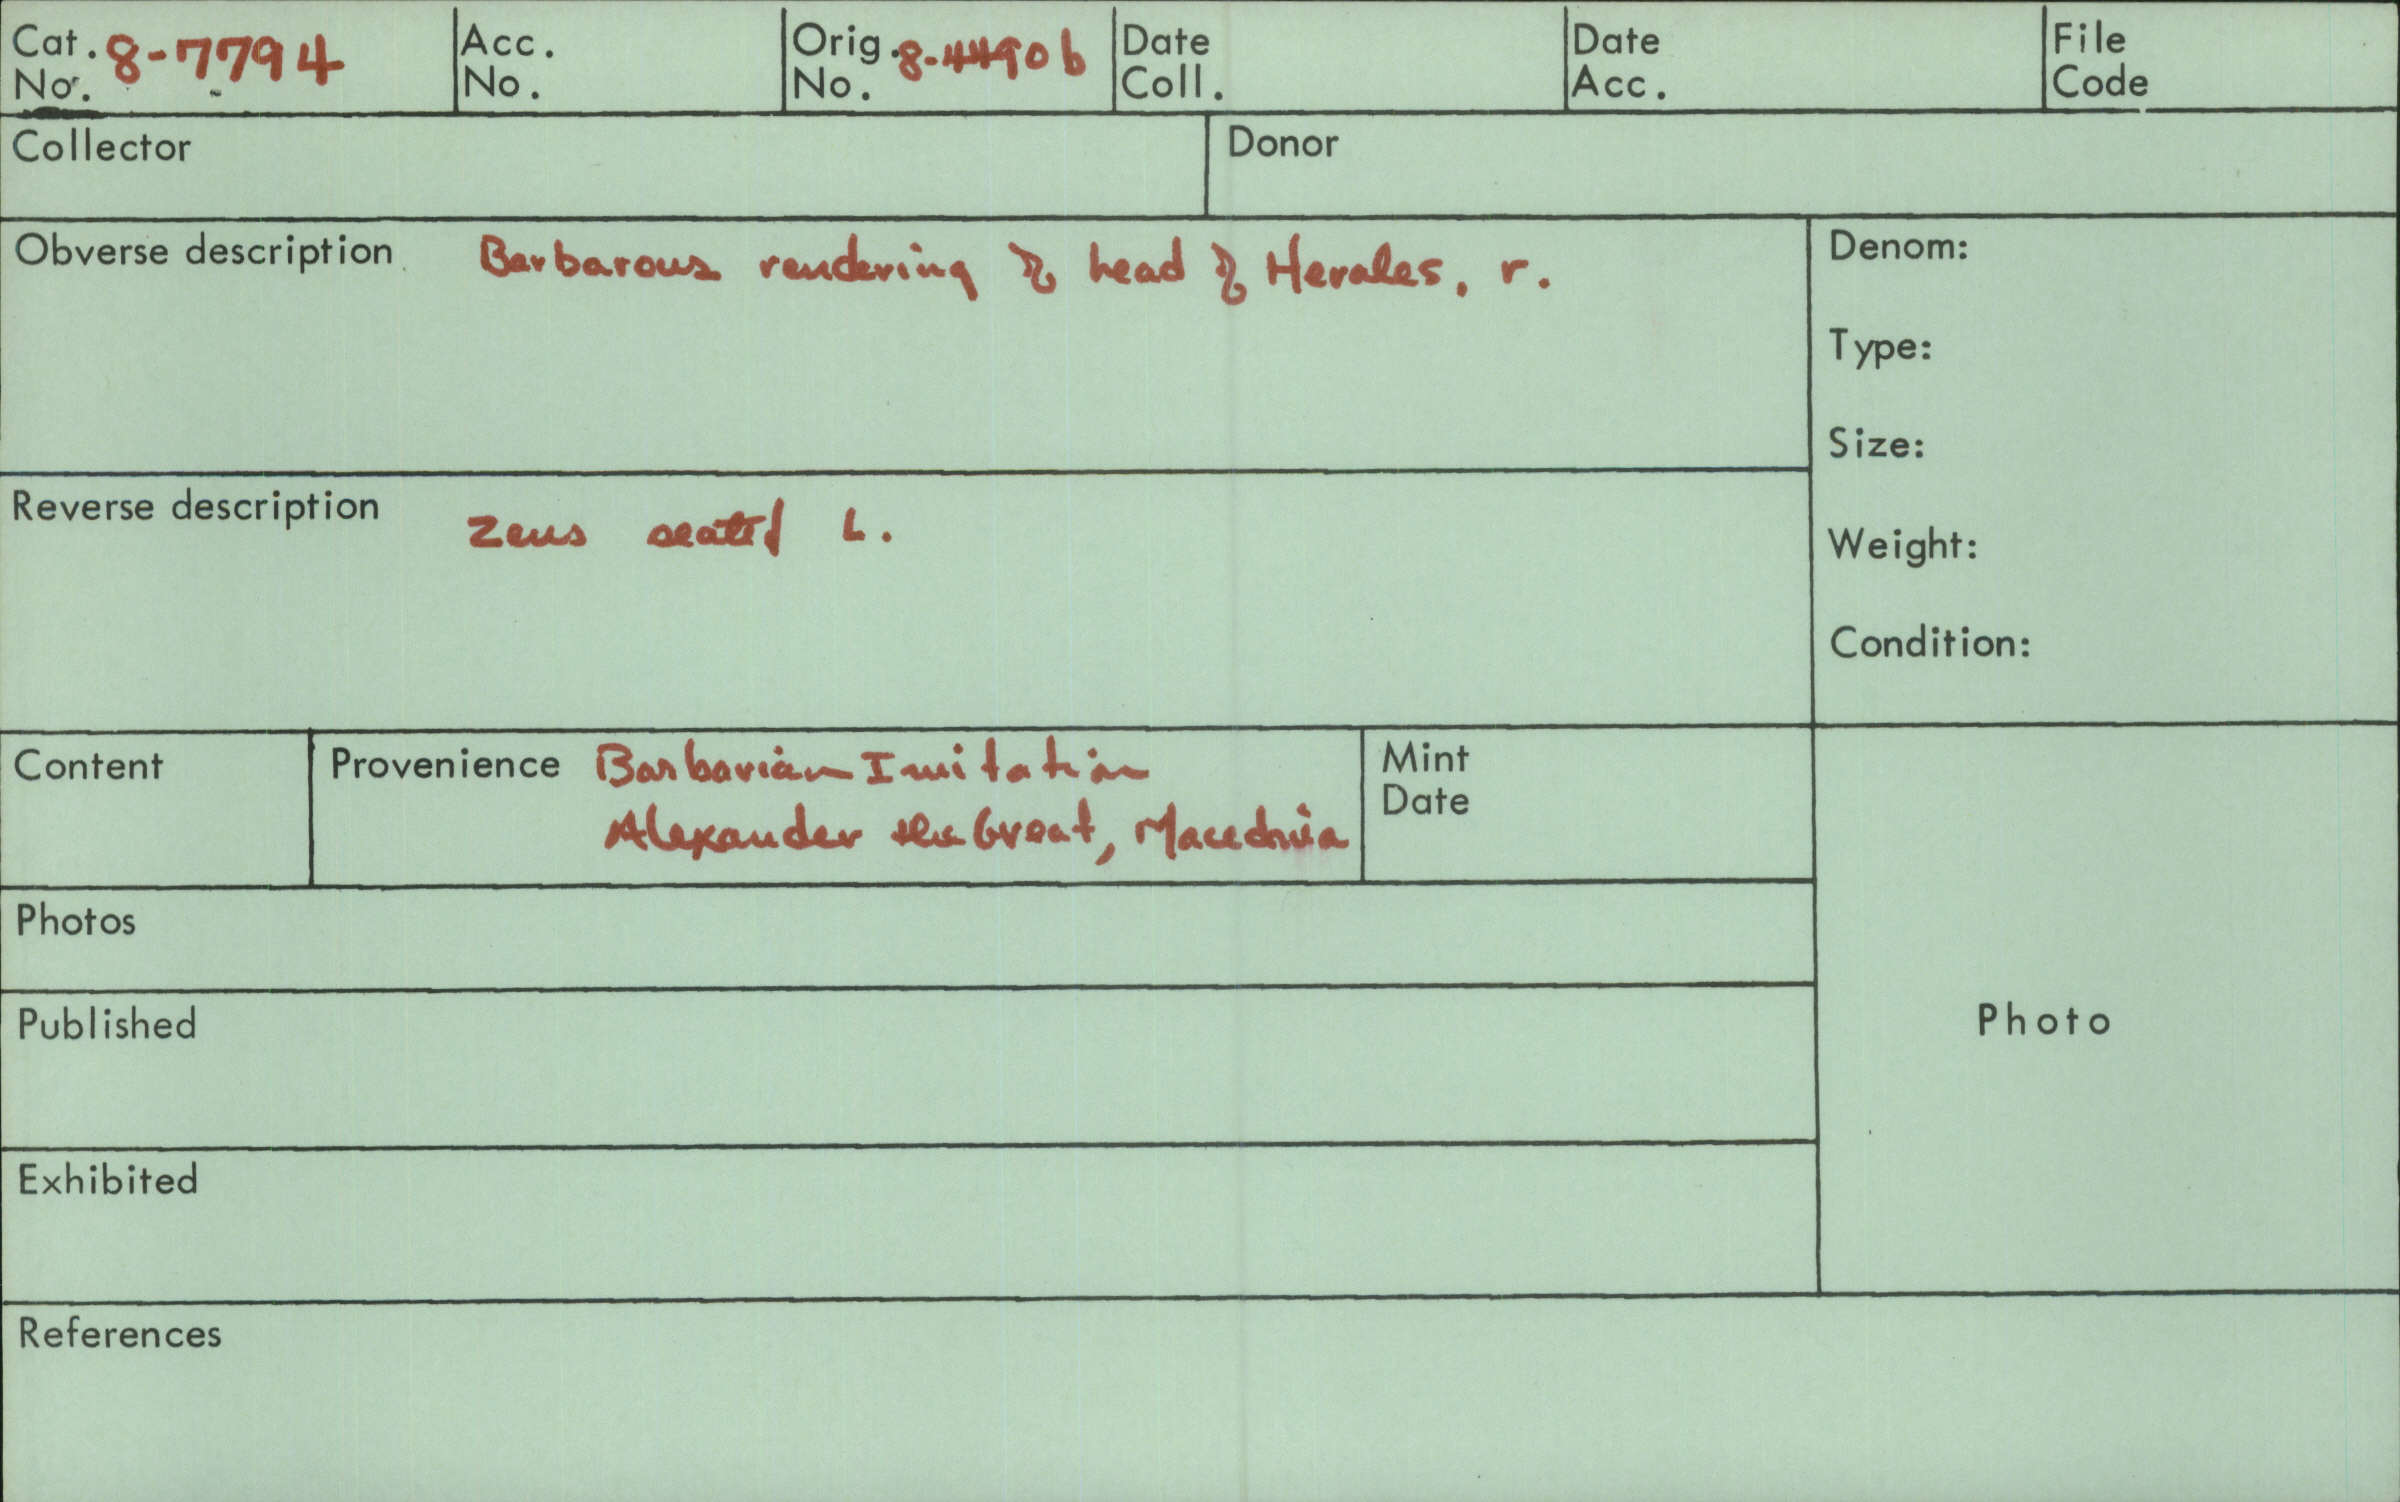 Cat. No. 8-7794 Acc. No. Orig. No. 8-4490b Date Coll. Date Acc. File Code
Collector Donor
Obverse description Barbarous rendering of head of Herales, r.
Denom:
Type:
Size:
Reverse description Zeus seated L.
Weight:
Condition:
Content Provenience Barbarian Imitation
Alexander the Great, Macedonia
Mint Date
Photos
Published
Photo
Exhibited
References